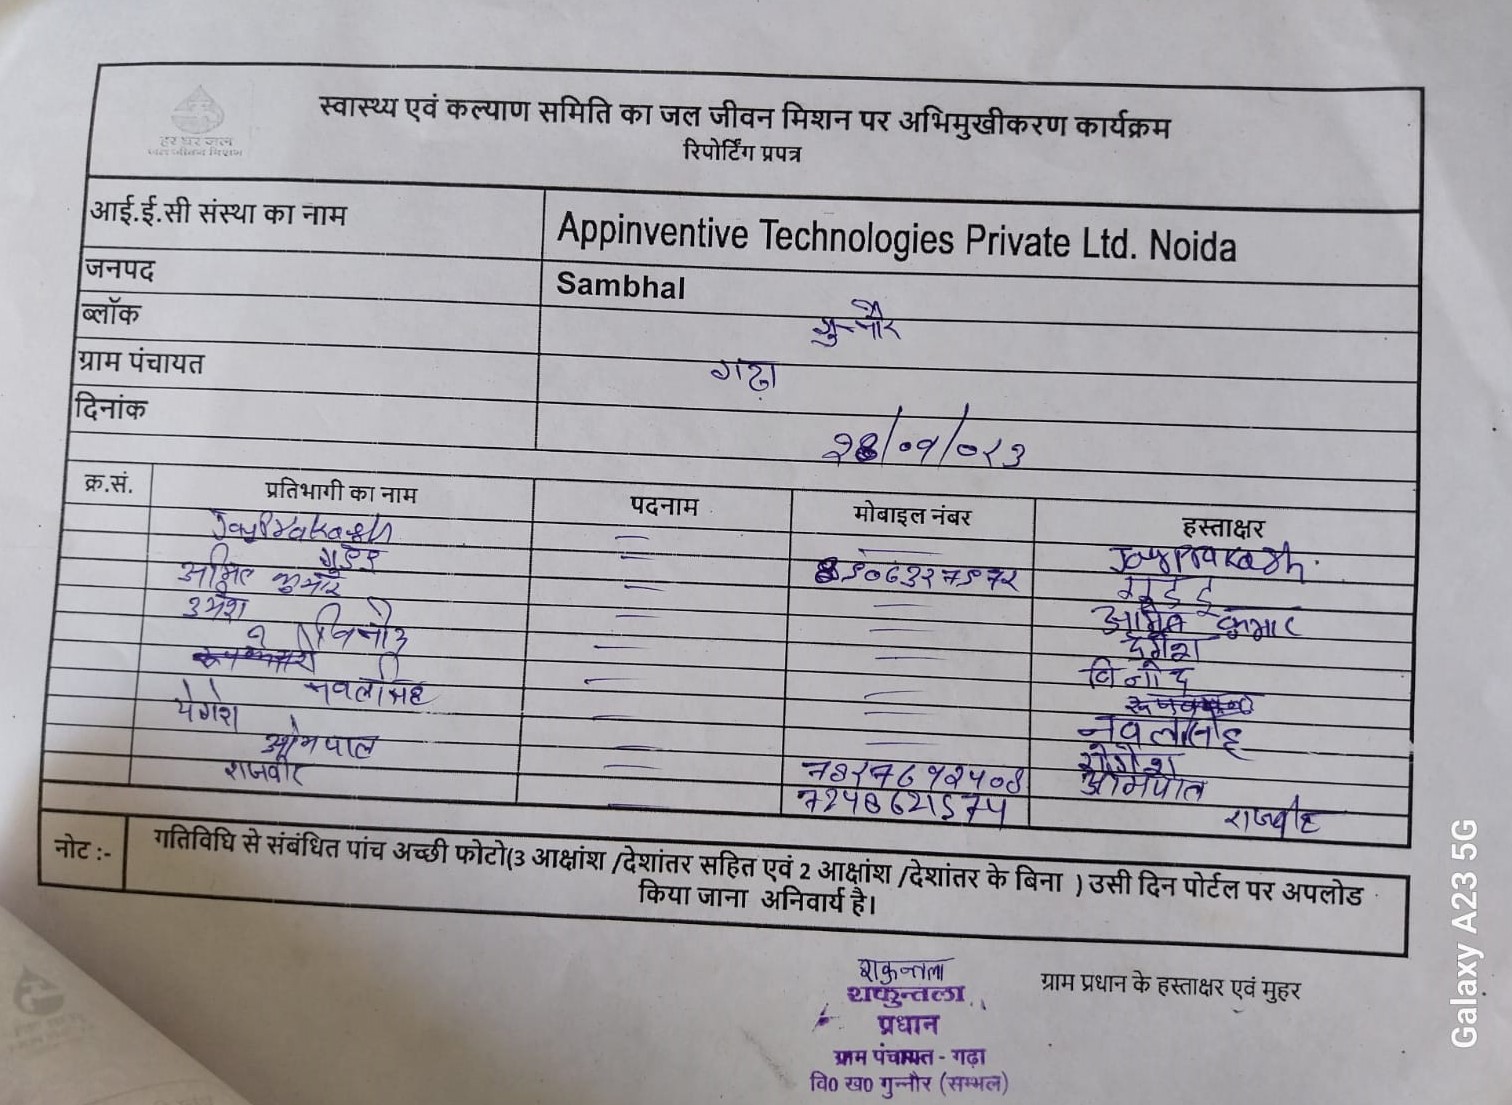 स्वास्थ्य एवं कल्याण समिति का जल जीवन मिशन पर अभिमुखीकरण कार्यक्रम
रिपोर्टिंग प्रपत्र
हर घर जल
जल जीवन मिशन
आई.ई.सी संस्था का नाम Appinventive Technologies Private Ltd. Noida
जनपद Sambhal
ब्लॉक गुन्नौर
ग्राम पंचायत गढ़ा
दिनांक
क्र.सं. प्रतिभागी का नाम पदनाम मोबाइल नंबर हस्ताक्षर
JayPrakash JayPrakash
गुड्डू गुड्डू
अमित कुमार अमित कुमार
उमेश
विनोद विनोद
नवलसिंह नवलसिंह
योगेश योगेश
ओमपाल ओमपाल
राजवीर राजवीर
नोट :- गतिविधि से संबंधित पांच अच्छी फोटो(3 आक्षांश /देशांतर सहित एवं 2 आक्षांश /देशांतर के बिना ) उसी दिन पोर्टल पर अपलोड
किया जाना अनिवार्य है।
शकुन्तला
शकुन्तला
प्रधान
ग्राम पंचायत - गढ़ा
वि0 ख0 गुन्नौर (सम्भल)
ग्राम प्रधान के हस्ताक्षर एवं मुहर
Galaxy A23 5G